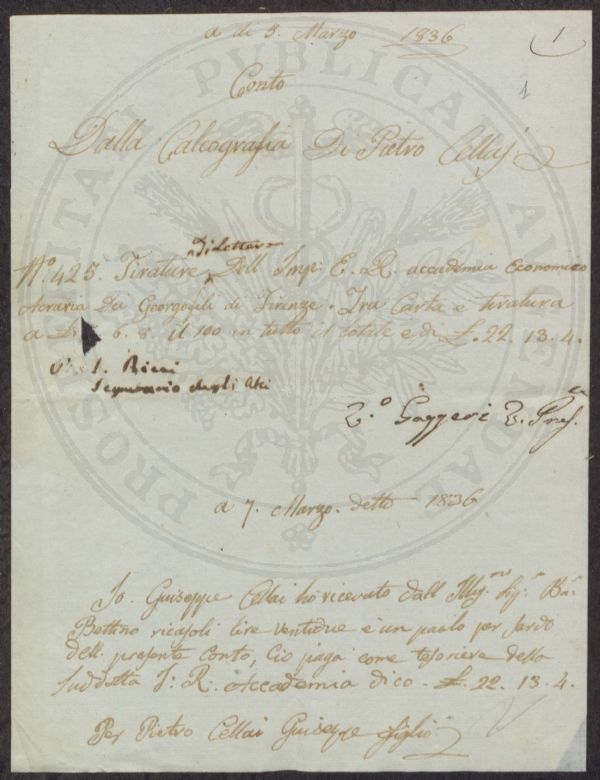 a di 5. Marzo 1836
1
1
Conto
Dalla Calcografia Di Pietro Cellaj
Di Lettere
N.º 425. Tirature Dell Imp: E. R. accademia Economico
Acraria Dei Georgofili di Firenze. Tra Carta e tiratura
a 6. 8 il 100 in tutto il totale e di £. 22. 13. 4.
V. I. Ricci
Segretario degli Atti
V.º Gazzeri V. Pres.
a 7. Marzo. detto 1836
Io. Guiseppe Cellai ho ricevuto dall Illmo. Sig.r Ba.n
Bettino ricasoli lire ventidue e un paolo per saldo
dell. presente conto, Cio paga come tesoriere della
Suddetta I. R. Accademia dico. £. 22. 13. 4.
Per Pietro Cellai Guiseppe figlio
PROSPERITATI PUBLICAE AUGENDAE